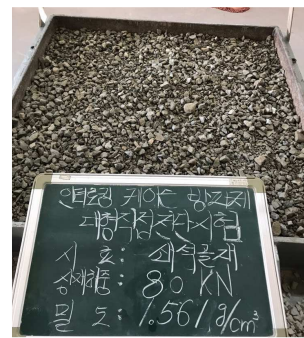 인터로킹 케이슨 방파제
대형직접전단시험
시 료: 쇄석골재
상재하중: 80 KN
밀 도: 1.561g/cm³